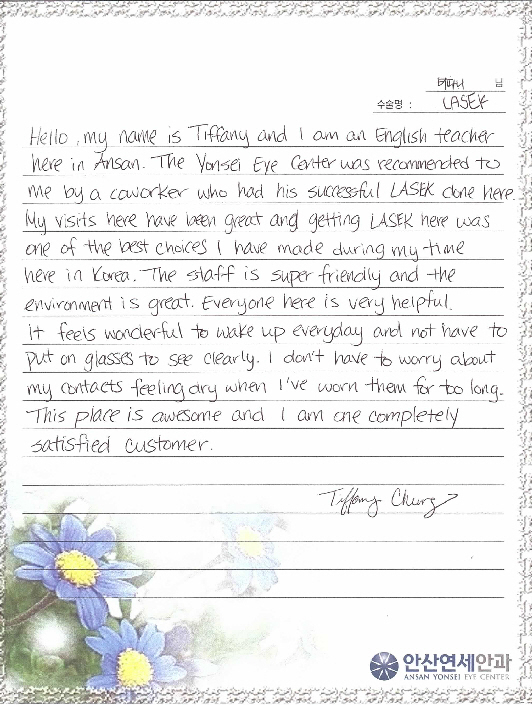 티파니 님
수술명 : LASEK
Hello, my name is Tiffany and I am an English teacher
here in Ansan. The Yonsei Eye Center was recommended to
me by a coworker who had his successful LASEK done here.
My visits here have been great and getting LASEK here was
one of the best choices I have made during my time
here in Korea. The staff is super friendly and the
environment is great. Everyone here is very helpful.
It feels wonderful to wake up everyday and not have to
put on glasses to see clearly. I don't have to worry about
my contacts feeling dry when I've worn them for too long.
This place is awesome and I am one completely
satisfied customer.
Tiffany Chung
안산연세안과
ANSAN YONSEI EYE CENTER